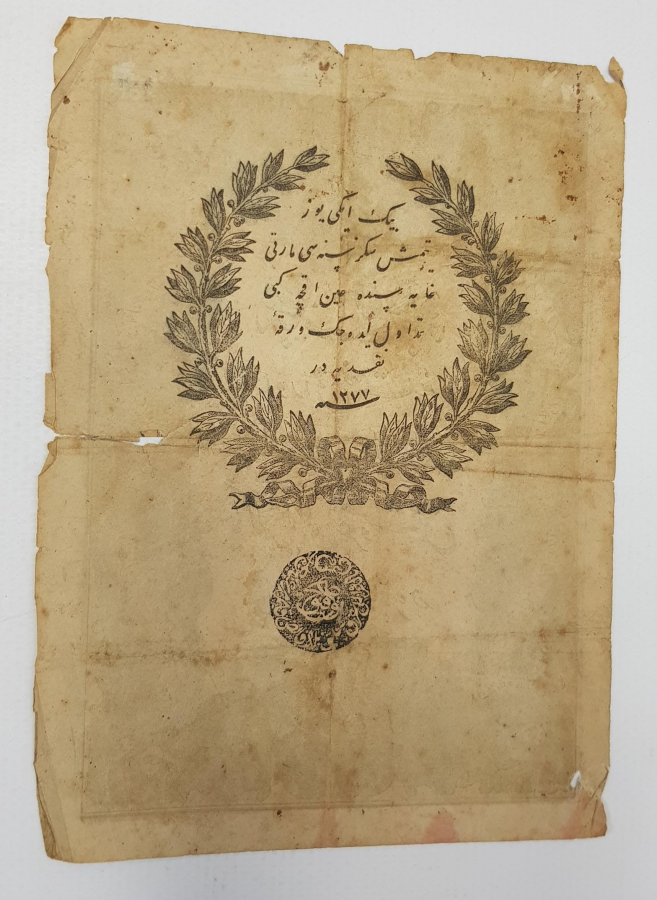 بیك ایكی یوز
یتمش سكز سنه سی مارتی
غایه سنده عین اقچه كبی
تداول ایده جك ورقۀ
نقدیه در
سنه ١٢٧٧